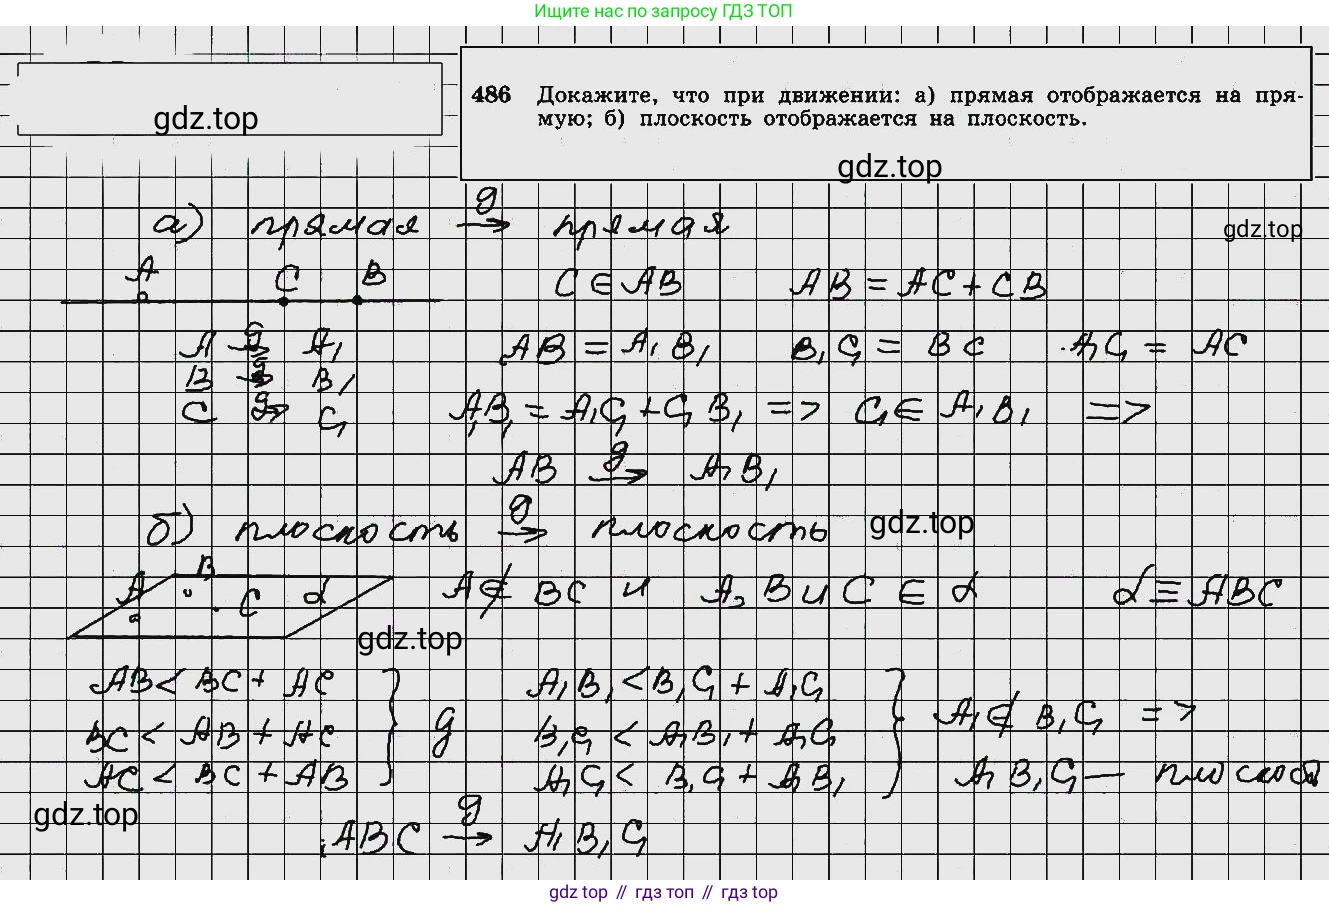 Ищите нас по запросу ГДЗ ТОП
gdz.top
486 Докажите, что при движении: а) прямая отображается на пря-
мую; б) плоскость отображается на плоскость.
gdz.top
а) прямая g→ прямая
gdz.top
A C B C ∈ AB AB = AC + CB
A g→ A₁ AB = A₁B₁ B₁C₁ = BC A₁C₁ = AC
B g→ B₁
C g→ C₁ A₁B₁ = A₁C₁ + C₁B₁ => C₁ ∈ A₁B₁ =>
AB g→ A₁B₁
б) плоскость g→ плоскость
gdz.top
A B C α A ∉ BC и A, B и C ∈ α α ≡ ABC
gdz.top
AB < BC + AC } g A₁B₁ < B₁C₁ + A₁C₁ }
BC < AB + AC B₁C₁ < A₁B₁ + A₁C₁ A₁ ∉ B₁C₁ =>
AC < BC + AB A₁C₁ < B₁C₁ + A₁B₁ A₁B₁C₁ —
gdz.top
ABC g→ A₁B₁C₁
gdz top // гдз топ // gdz top